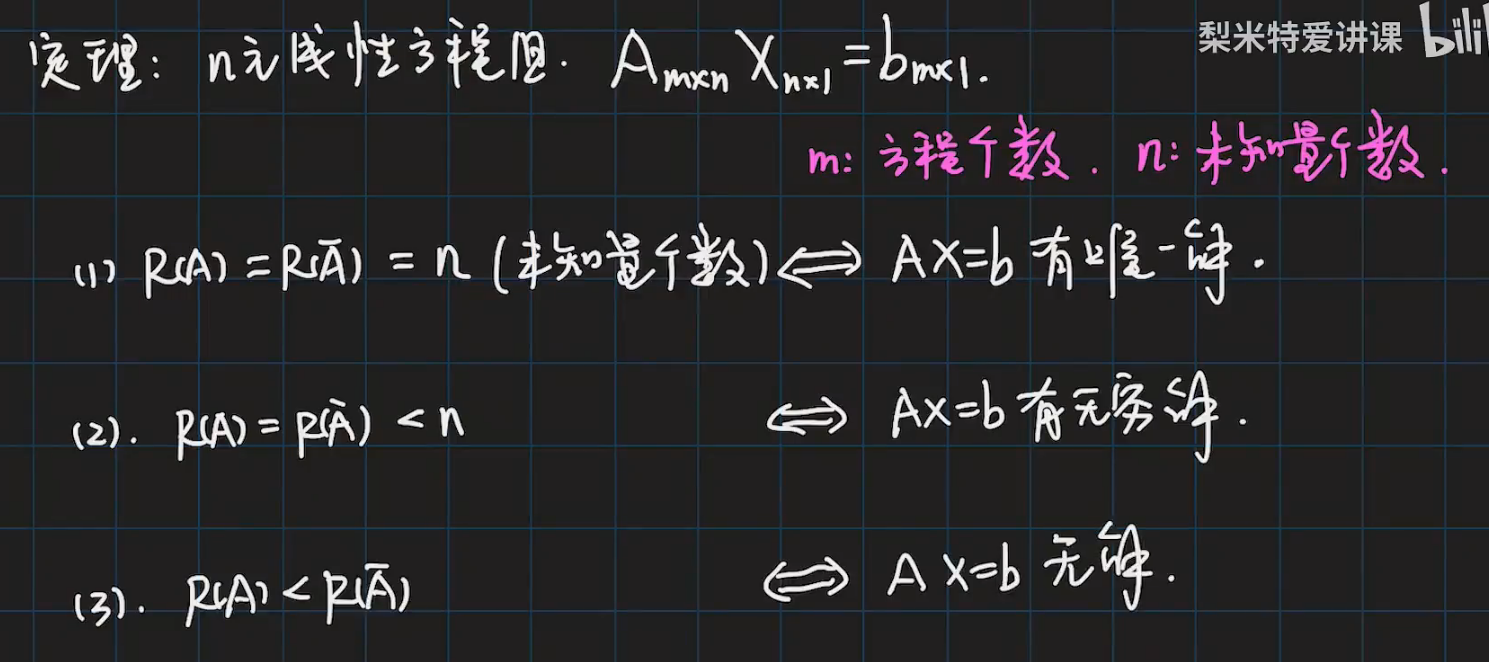 梨米特爱讲课 bili
定理: n元线性方程组. A_{m×n} X_{n×1} = b_{m×1}.
m: 方程个数. n: 未知量个数.
(1) R(A) = R(Ā) = n (未知量个数) ⟺ AX=b 有唯一解.
(2). R(A) = R(Ā) < n ⟺ AX=b 有无穷解.
(3). R(A) < R(Ā) ⟺ AX=b 无解.